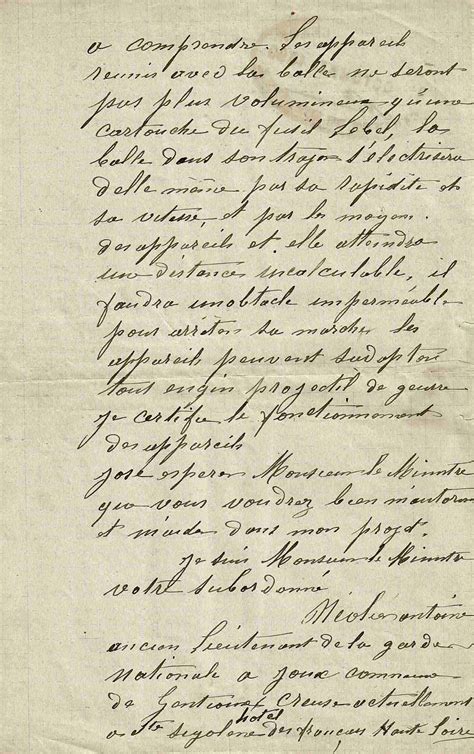 a comprendre. Les appareils
reunis avec la balle ne seront
pas plus volumineux qu'une
cartouche du fusil Lebel, la
balle dans son trajet s'électrisera
d'elle même par sa rapidité et
sa vitesse, et par les moyens
des appareils et elle atteindra
une distance incalculable, il
faudra un obstacle imperméable
pour arreter sa marche les
appareils peuvent s'adapter
tout engin projectil de geurre
je certifie le fonctionnement
des appareils
jose esperer Monsieur le Ministre
que vous voudrez bien mautoriser
et m'aider dans mon projet.
je suis Monsieur le Ministre
votre subordonné
antoine
ancien lieutenant de la garde
Nationale a joux commune
de Gentioux Creuse actuellement
a Ste Sigolene hotel des français Haute Loire